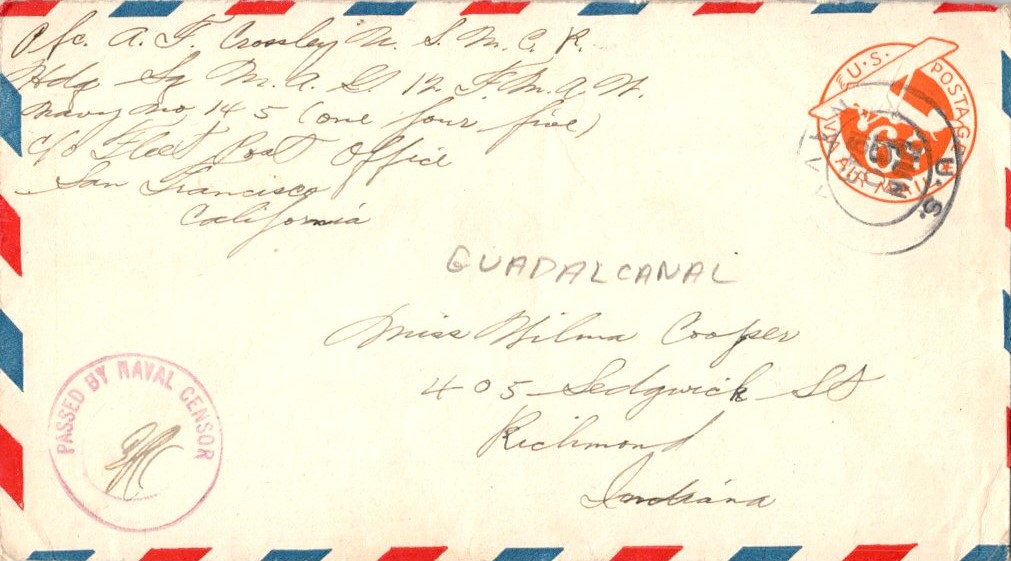 Pfc. A. F. Crossley U. S. M. C. R.
Hdq Sq M. A. G. 12 F. M. A. W.
Navy No 145 (one four five)
C/o Fleet Post Office
San Francisco
California
U.S. POSTAGE
6¢
AIR MAIL
U.S.
NAVY
GUADALCANAL
Miss Wilma Cooper
405 Sedgwick St
Richmond
Indiana
PASSED BY NAVAL CENSOR